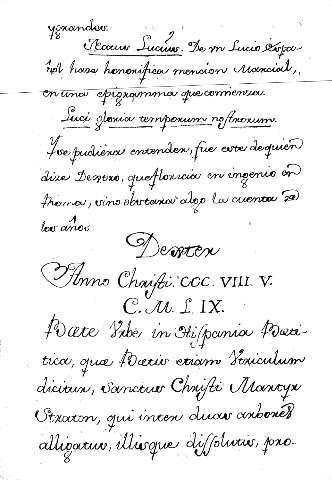 ygrandes.
Status Lucius. De m Lucio Espa-
ñol hase honorifica mencion Marcial,
en una epigramma que comiensa.
Luci gloria temporum nostrorum.
Yse pudiera entender, fue este de quien
dize Destro, que florecia en ingenio en
Roma, sino obstara algo la cuenta de
los años
Dexter
Anno Christi. CCC. VIII. V.
C. M. L IX.
Bæte Vrbe in Hispania Bæti-
tica, quæ Bætis etiam Vtriculum
dicitur, sanctus Christi Martyr
Straton, qui inter duas arbores
alligatus, illisque dissolutis, pro-